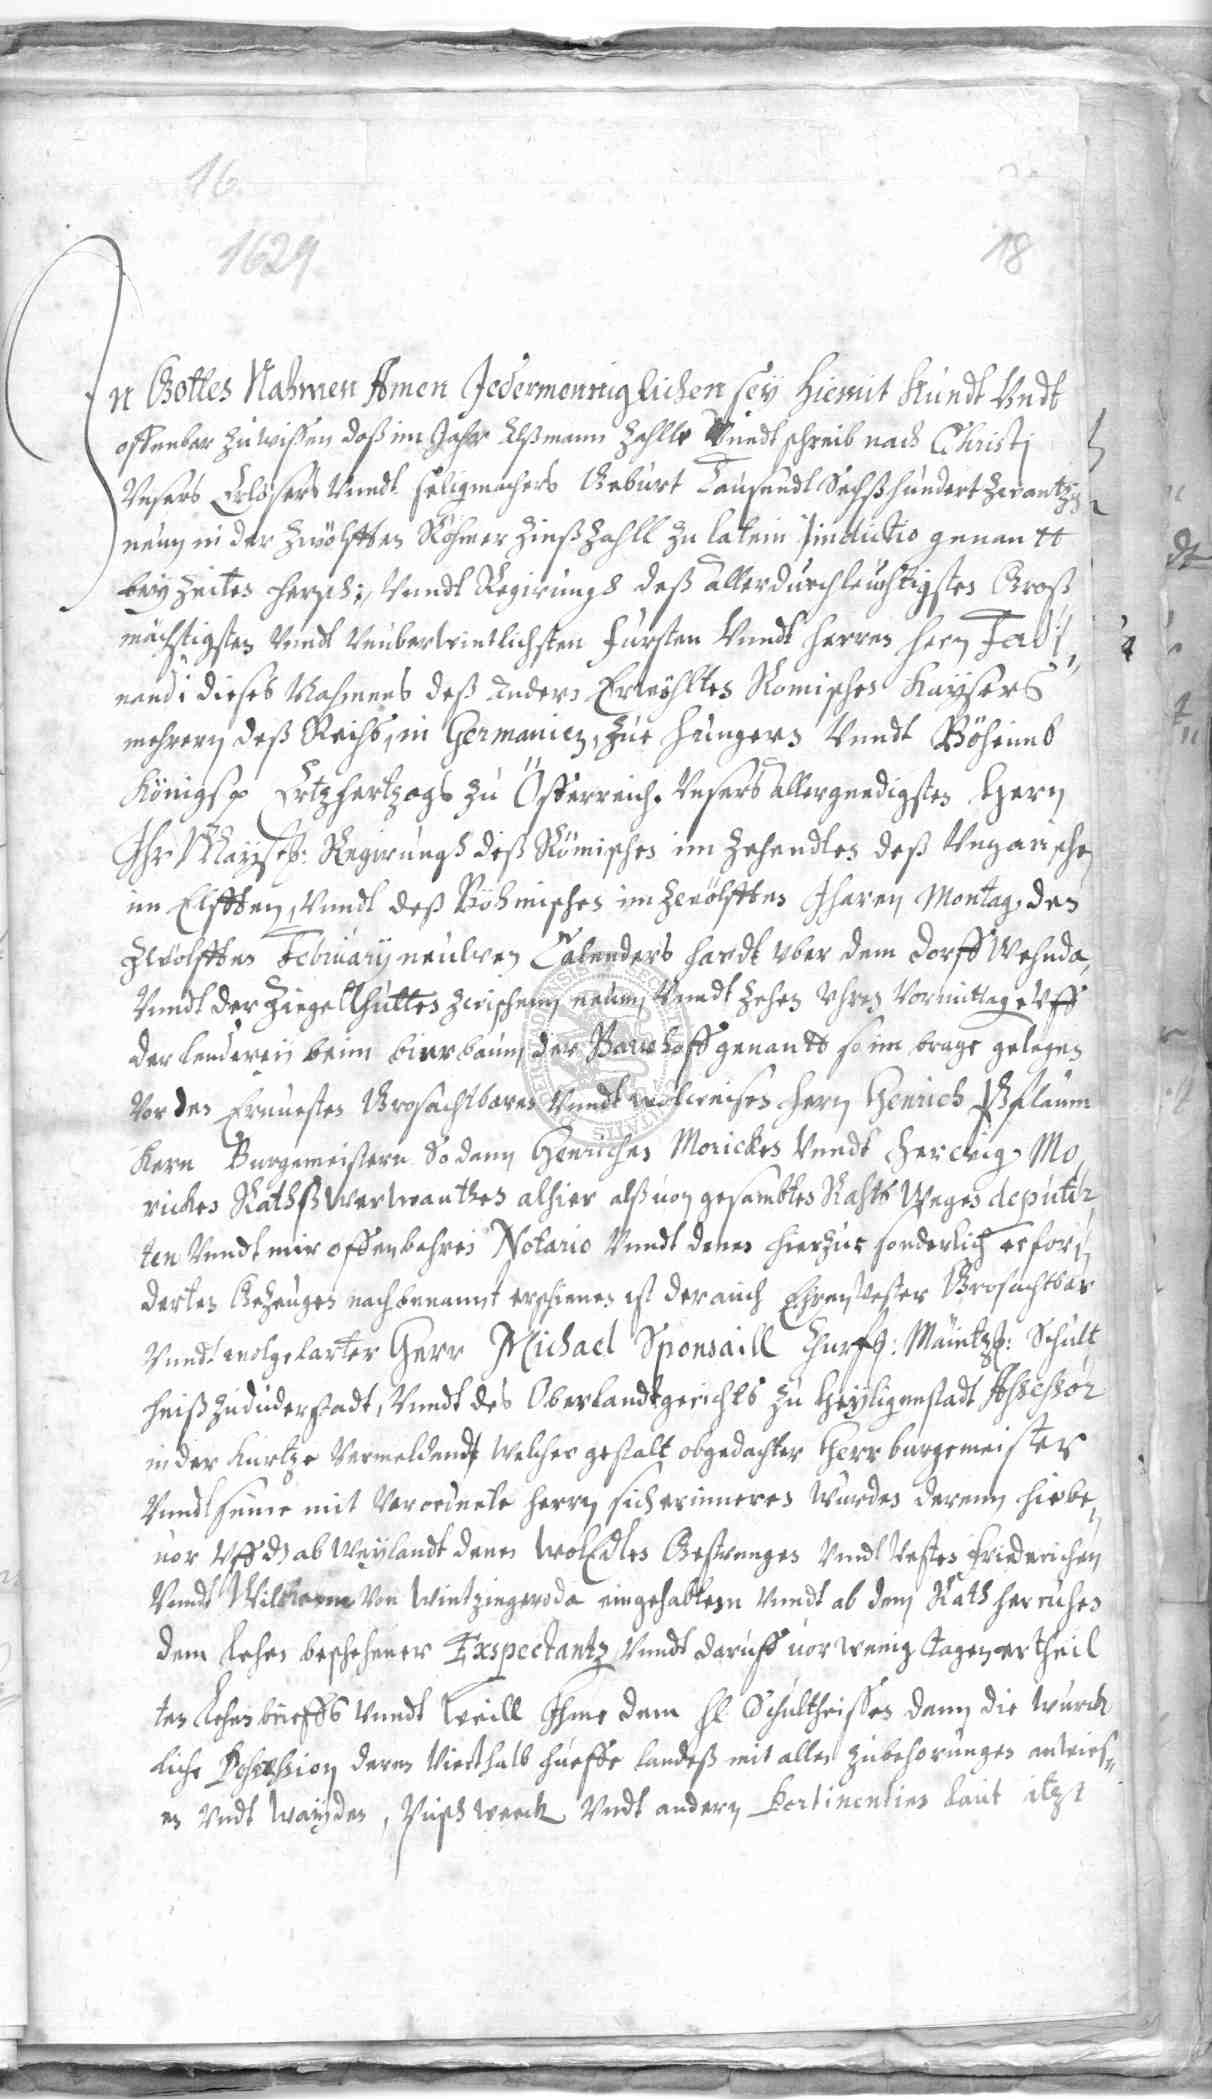 16
1629
18
In Gottes Nahmen Amen Jedermenniglichen sey hiemit Kundt Undt
offenbar zu wissen daß im Jahr Alß mann zahlte Vnndt schreib nach Christj
Vnsers Erlösers Vnndt seligmachers Geburt Tausendt Sechßhundert zwantzig
neun in der zwölfften Röhmer Zinßzahll zu latein Jindictio genandt
bey Zeiten hersch: Vnndt Regirungh deß allerdurchleuchtigsten Groß
mächtigsten Vnndt Vnuberwintlichsten Fursten Vnndt herren hern Ferdi„
nandi dieses Nahmens deß Andern Erwöhltes Romischen Kaysers
mehrern deß Reichs, in Germanien, zue Hungern Vnndt Böheimb
Königs p Ertzhertzogs zu Österreich. Vnsers allergnedigsten Hern
Ihr Mayst: Regirungh deß Römischen im zehendten deß Vngarischen
im Elfften, Vnndt deß Böhmischen im zwölfften Jharen Montag, den
zwölfften February neuwen Calenders hardt vber dem dorff Wehnda,
Vnndt der Ziegellhutten zwischenn neunn Vnndt zehen vhren Vormittag, Vff
der lenderey beim birrbaum der Bawhoff genandt so im brage gelegen
Vor den Ernuesten Grosachtbaren Vnndt wolweisen hern Henrich Pflaum
Kern Burgemeistern So dann Henrichen Morickes Vnndt Herwig Mo„
rickes Rathß Verwandten alhier alß von gesambtes Rahts Wegen deputir„
ten Vnndt mir offenbahren Notario Vnndt denen hierzue sonderlich erfor„
derten Gezeugen nachbenannt erschienen ist der auch Ehrnvester Grosachtbar
Vnndt wolgelarter Herr Michael Sponsaill Churf: Maintz: Schult
heiß zu duderstadt, Vnndt des Oberlandtgerichts zu Heyligenstadt Assessor
in der Kurtze Vermeldendt welcher gestalt obgedachter Herr burgemeister
Vnndt seine mit Verordnete herrn sich erinneren wurden derenn hiebe„
uor Vff d ab Weylandt denen WolEdlen Gestrengen Vnndt Vesten Friederichen
Vnndt Wilhelm Von Wintzingeroda eingehabtem Vnndt ab dem Rath herruhes
dem Lehen beschehener Exspectantz Vnndt daruff uor wenig tagen ertheil
ten Lehenbrieffs Vnndt Weill Ihme dem H Schultheissen dann die wurck
liche Possession deren Vierthalb huesse landeß mit allen zubehorungen anwies„
en Vndt wayden, Vischweck Vndt andern Pertinentien laut itzt